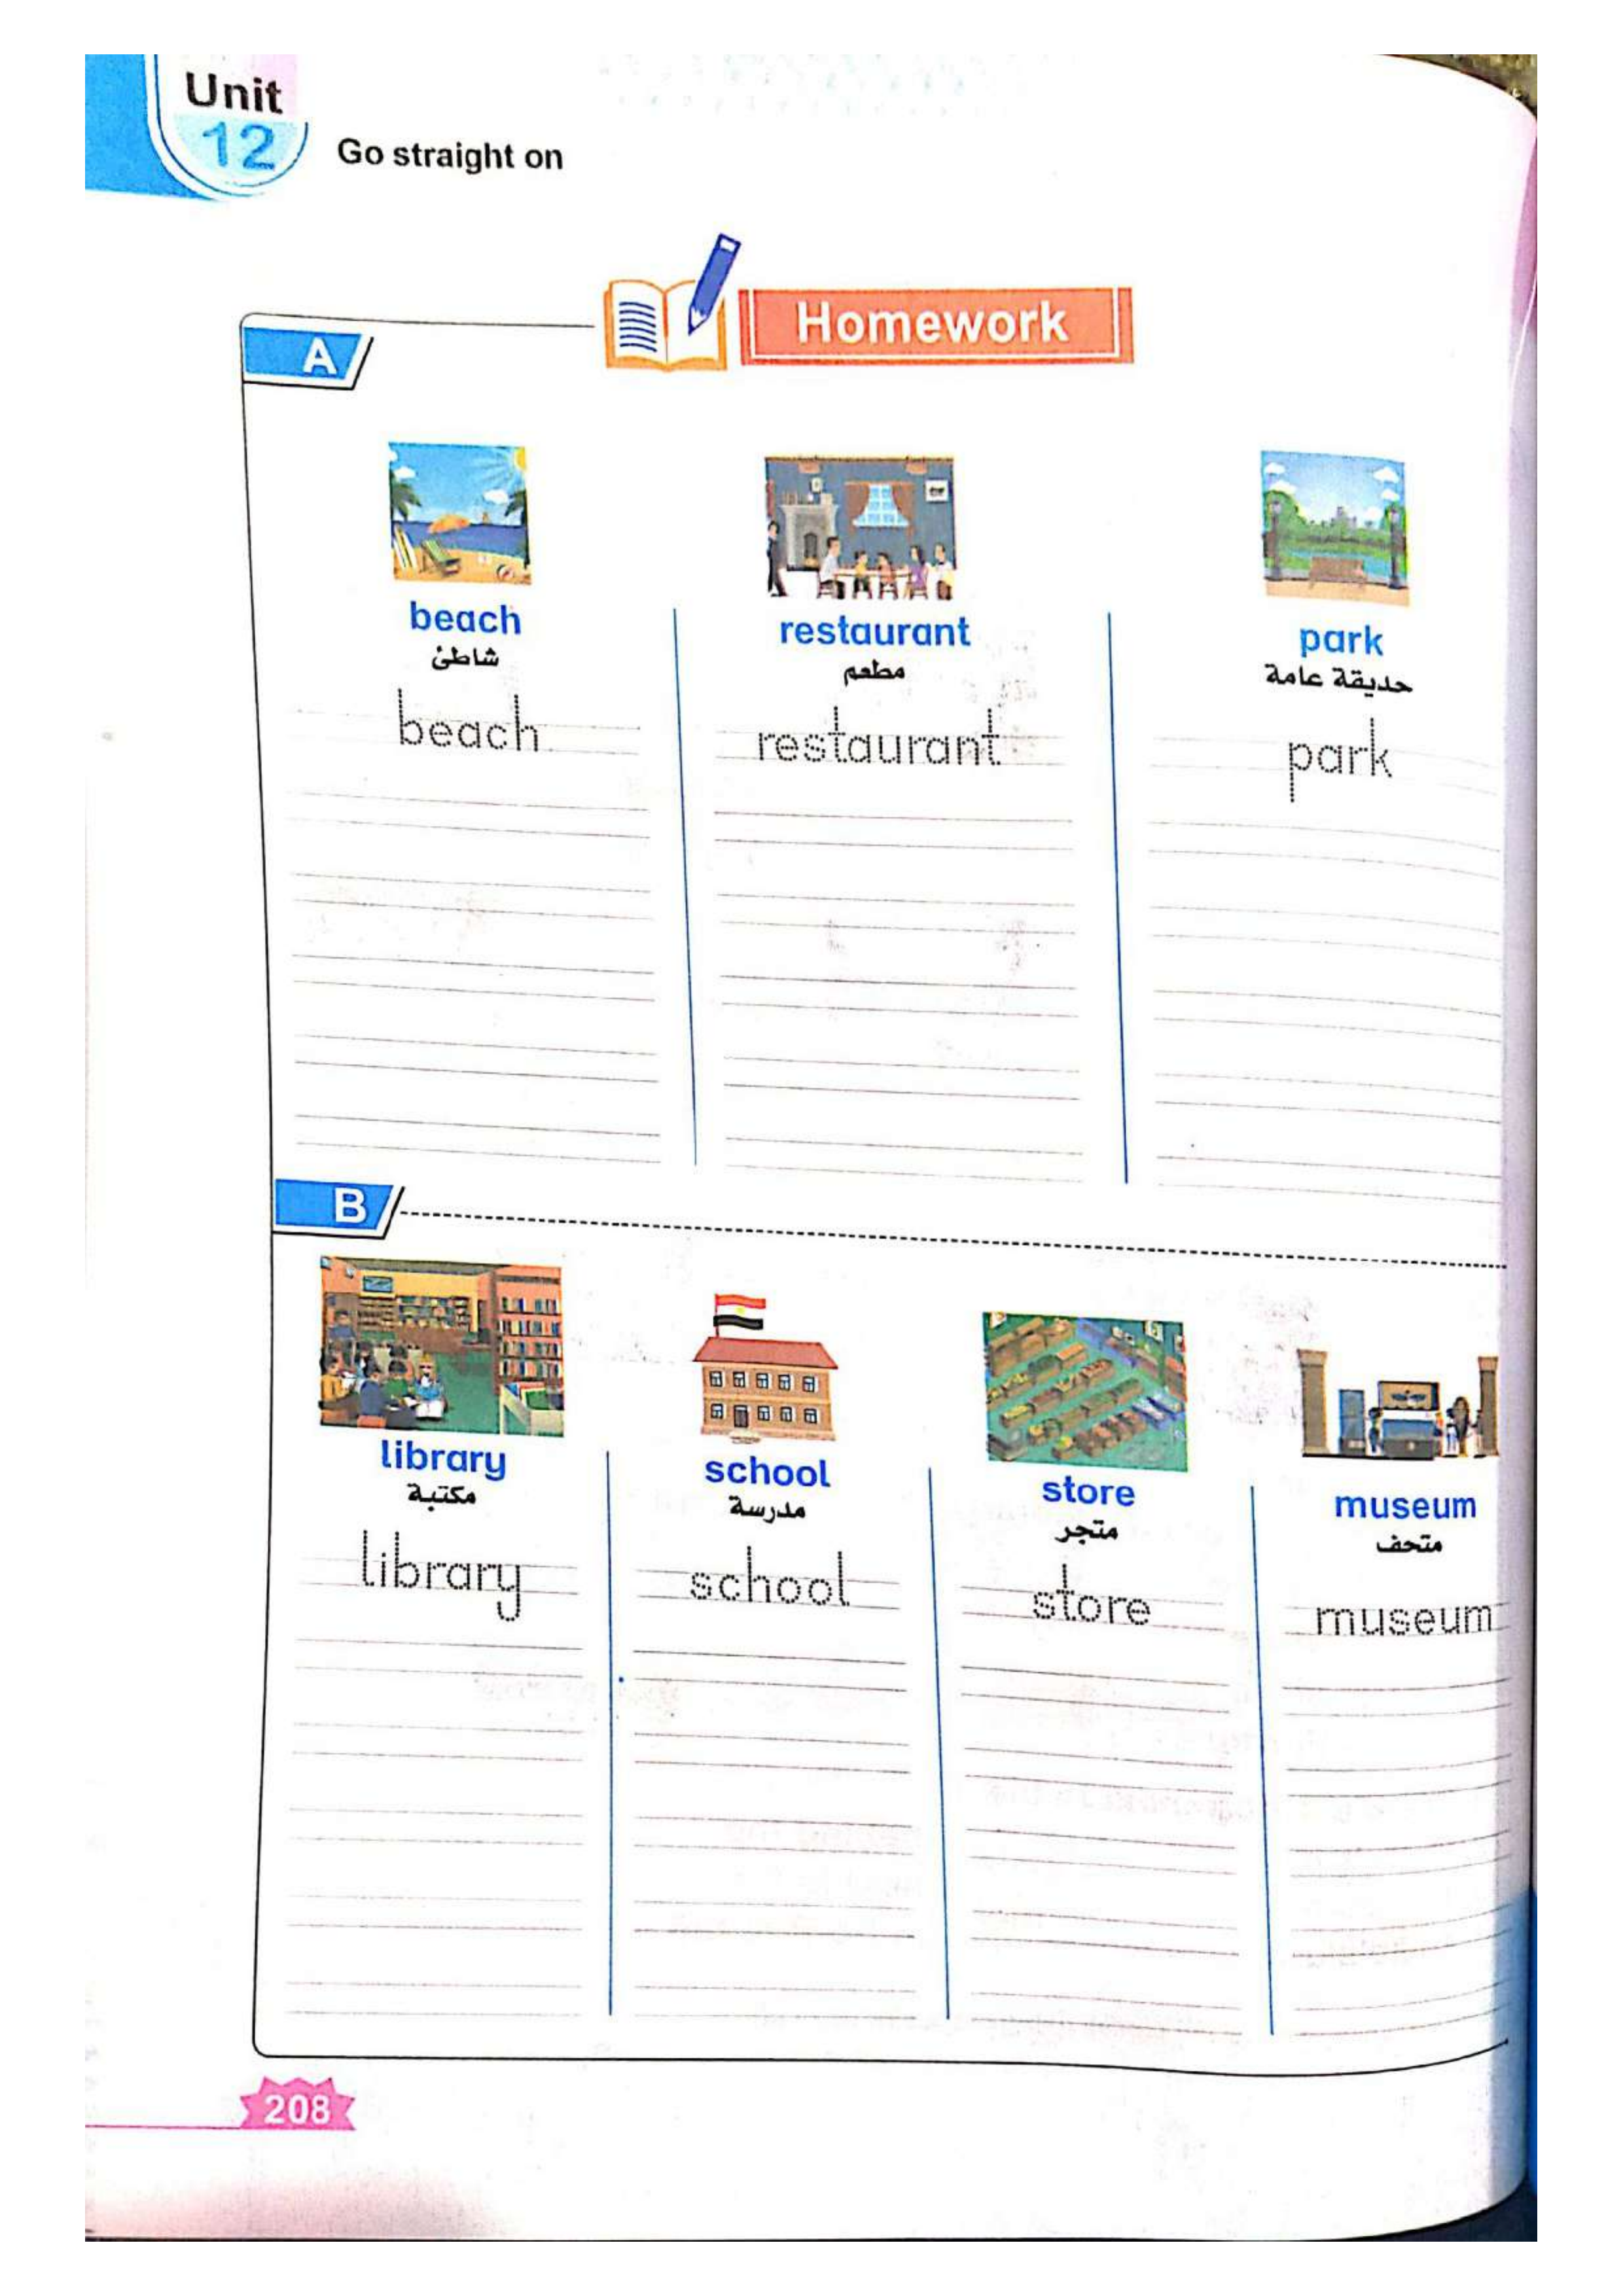 Unit
12
Go straight on
Homework
A
beach
شاطئ
beach
restaurant
مطعم
restaurant
park
حديقة عامة
park
B
library
مكتبة
library
school
مدرسة
school
store
متجر
store
museum
متحف
museum
208